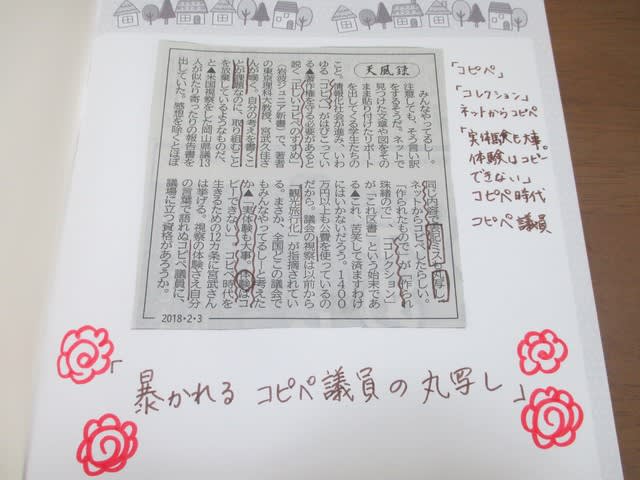 天風録
みんなやってるしー。
注意しても、そう言い訳
をするそうだ。ネットで
見つけた文章や図をその
まま貼り付けたリポート
を出してくる学生たちの
こと。情報化社会が進み、いわ
ゆる「コピペ」がはびこってい
る▲著作権を守る必要があると
説く「正しいコピペのすすめ」
(岩波ジュニア新書)で、著者
の東京理科大教授、宮武久佳さ
んが嘆く。自分の考えを書くこ
とが課題なのに、取り組むこと
を放棄しているようなものだ、
と▲米国視察をした岡山県議13
人が似たり寄ったりの報告書を
出していた。感想を除くとほぼ
同じ内容で表記ミスも丸写し。
ネットからコピペしたらしい。
「作られたもので」が「作られ
珠緒ので」、「コレクション」
が「これ区書」という始末であ
る▲これ、苦笑して済ますわけ
にはいかないだろう。1400
万円以上も公費を使っているの
だから。議会の視察は以前から
「観光旅行化」が指摘されてい
る。まさか、全国どこの議会で
もみんなやってるしーと考えた
か▲「実体験も大事。体験はコ
ピーできない」。コピペ時代を
生きるための12カ条に宮武さん
は挙げる。視察の体験さえ自分
の言葉で語れぬコピペ議員に、
議場に立つ資格があろうか。
2018・2・3
「コピペ」
「コレクション」
ネットからコピペ
「実体験も大事。
体験はコピー
できない」
コピペ時代
コピペ議員
「暴かれる コピペ議員の丸写し」